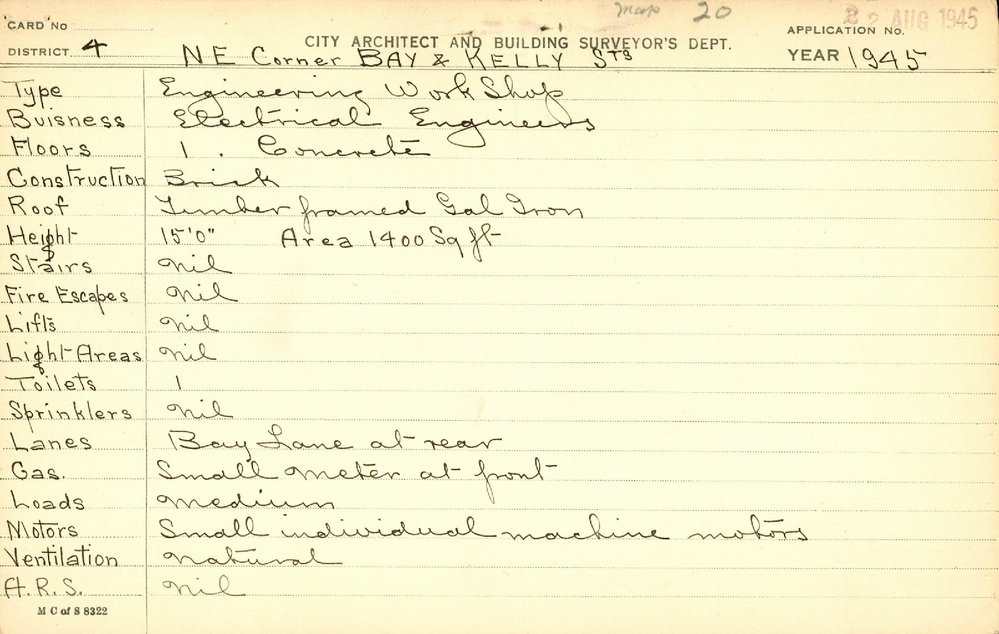 map 20
22 AUG 1945
CARD NO
CITY ARCHITECT AND BUILDING SURVEYOR'S DEPT.
APPLICATION NO.
DISTRICT 4
NE Corner BAY & KELLY STS
YEAR 1945
Type Engineering Work Shop
Buisness Electrical Engineers
Floors 1 . Concrete
Construction Brick
Roof Timber framed Gal Iron
Height 15'0" Area 1400 Sq ft
Stairs Nil
Fire Escapes Nil
Lifts Nil
Light Areas Nil
Toilets 1
Sprinklers Nil
Lanes Bay Lane at rear
Gas. Small meter at front
Loads Medium
Motors Small individual machine motors
Ventilation Natural
A.R.S. Nil
M C of S 8322